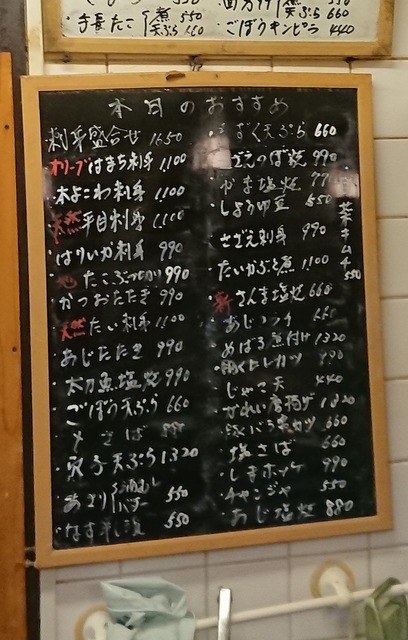 手長たこ 煮 550
天ぷら 660
天ぷら 660
ごぼうキンピラ 440
本日のおすすめ
刺身盛合せ 1650
オリーブはまち刺身 1,100
本よこわ刺身 1,100
天然平目刺身 1,100
はりいか刺身 990
地たこぶつ切り 990
かつおたたき 990
天然たい刺身 1,100
あじたたき 990
太刀魚塩焼 990
ごぼう天ぷら 660
〆さば 880
穴子天ぷら 1,320
あさり 酒むし
バター 550
なす 550
天ぷら 660
さざえつぼ焼 990
塩焼 77
しょうゆ豆 550
さざえ刺身 990
たいかぶと煮 1,100
新さんま塩焼 660
あじ
めばる煮付け 1320
カツ
じゃこ天 440
かれい唐揚げ 1320
カツ 660
塩さば 660
しまホッケ 990
チャンジャ 550
あじ塩焼 880
菜キムチ 550